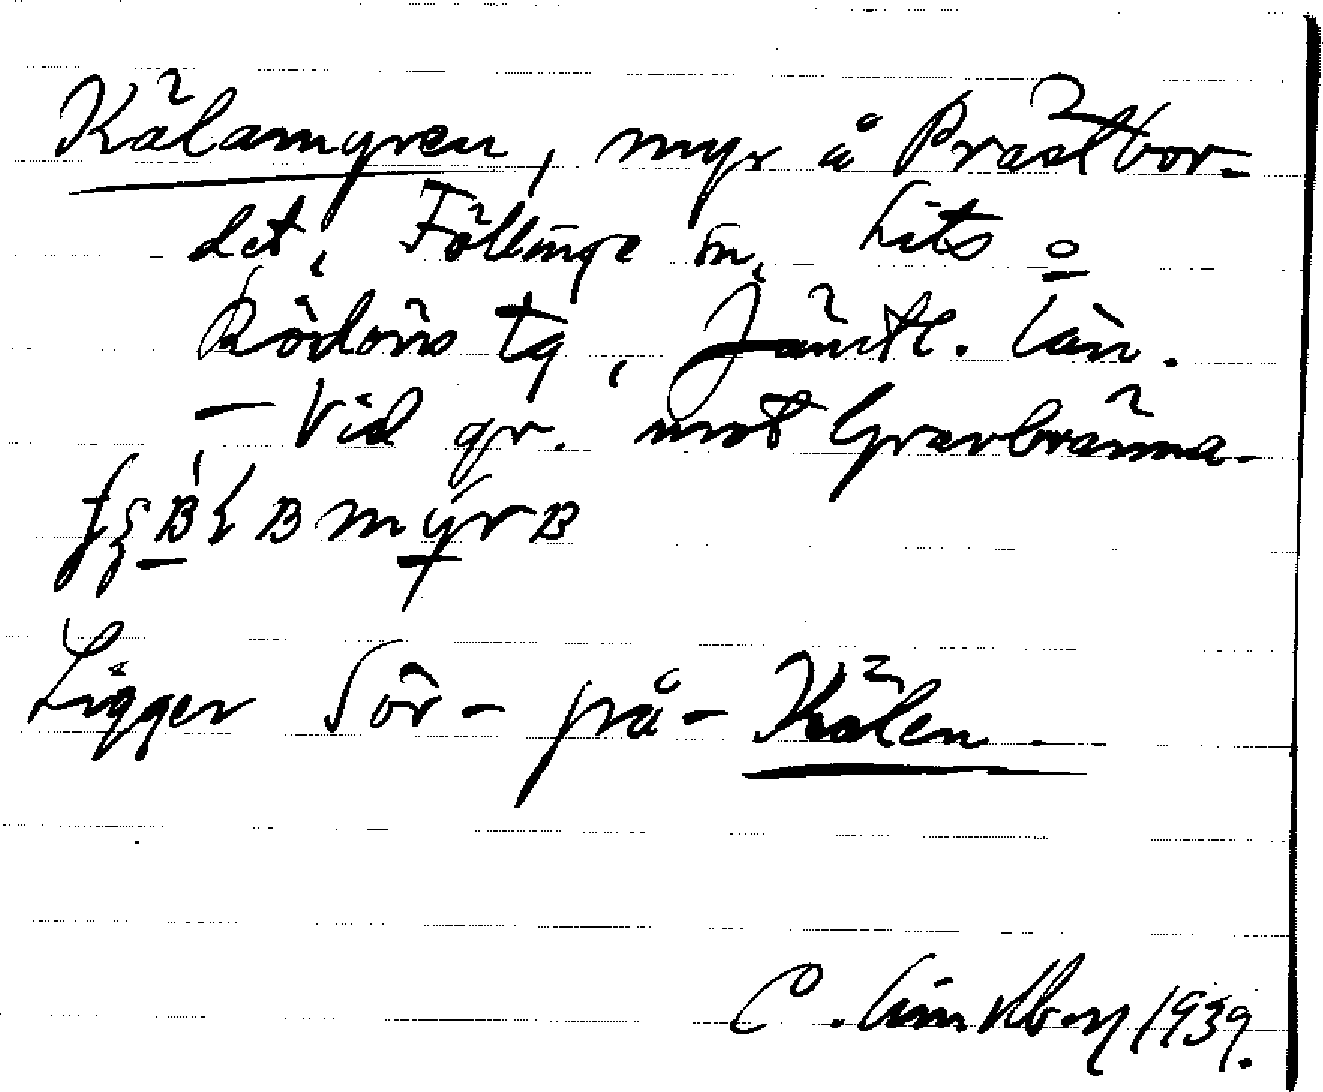 Kälamyren, myr å Prästbor-
det, Föllinge sn, Lits o
Rödöns tg, Jämtl. län.
– Vid gr. mot Gravbränna.
Ligger Sör-på-Kälen.
C. Lindberg 1939.